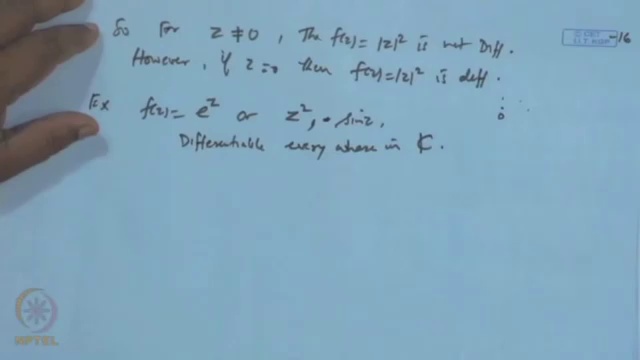 So For z ≠ 0, The f(z) = |z|² is not Diff.
However, if z = 0 then f(z) = |z|² is diff.
Ex f(z) = e^z or z², sin z,
Differentiable every where in ℂ.
-16
NPTEL